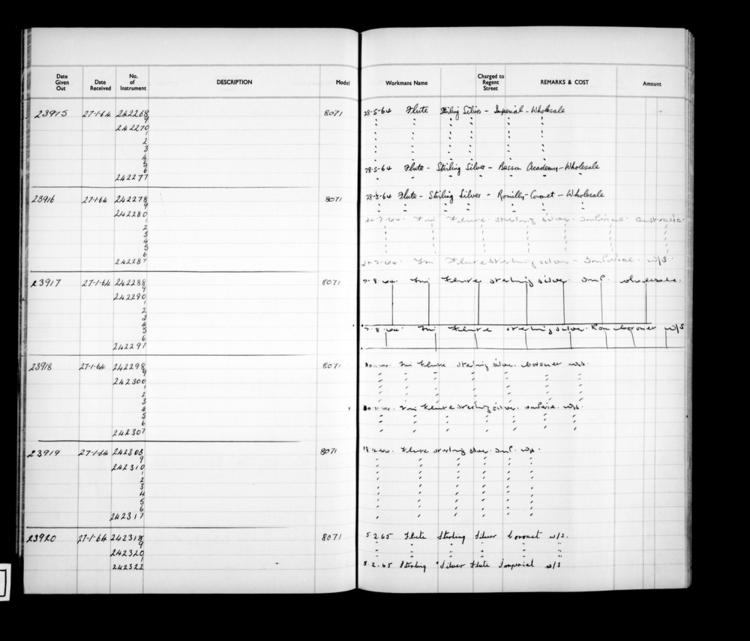 Date Given Out Date Received No. of Instrument DESCRIPTION Model Workmans Name Charged to Regent Street REMARKS & COST Amount
23915 27-1-64 242268 8071 28-5-64 Flute Stirling Silver - Imperial - Wholesale
9 " " " " "
242270 " " " " "
1 " " " " "
2 " " " " "
3 " " " " "
4
5
6 28-5-64 Flute - Stirling Silver - Academy - Wholesale
242277 " " " " "
23916 27-1-64 242278 8071 Flute - Stirling Silver - Romilly - Coronet - Wholesale
9 " " " " "
242280 Flute Sterling silver
1
2
3
4
5
6
242287 Flute Sterling silver - w/s
23917 27-1-64 242288 8071 Flute sterling silver Imp. wholesale
9
242290
1
2
3
4
5 Flute sterling silver w/s
6
242297
23918 27-1-64 242298 8071 Flute sterling silver coronet w/s
9
242300
1
2
3
4 Flute sterling silver w/s
5
6
242307
23919 27-1-64 242308 8071 Flute sterling silver Imp.
9
242310
1
2
3
4
5
6
242317
23920 27-1-64 242318 8071 5.2.65 Flute Sterling Silver Coronet w/s.
9 " " " " "
242320 " " " " "
1
242322 8.2.65 Sterling Silver Flute Imperial w/s